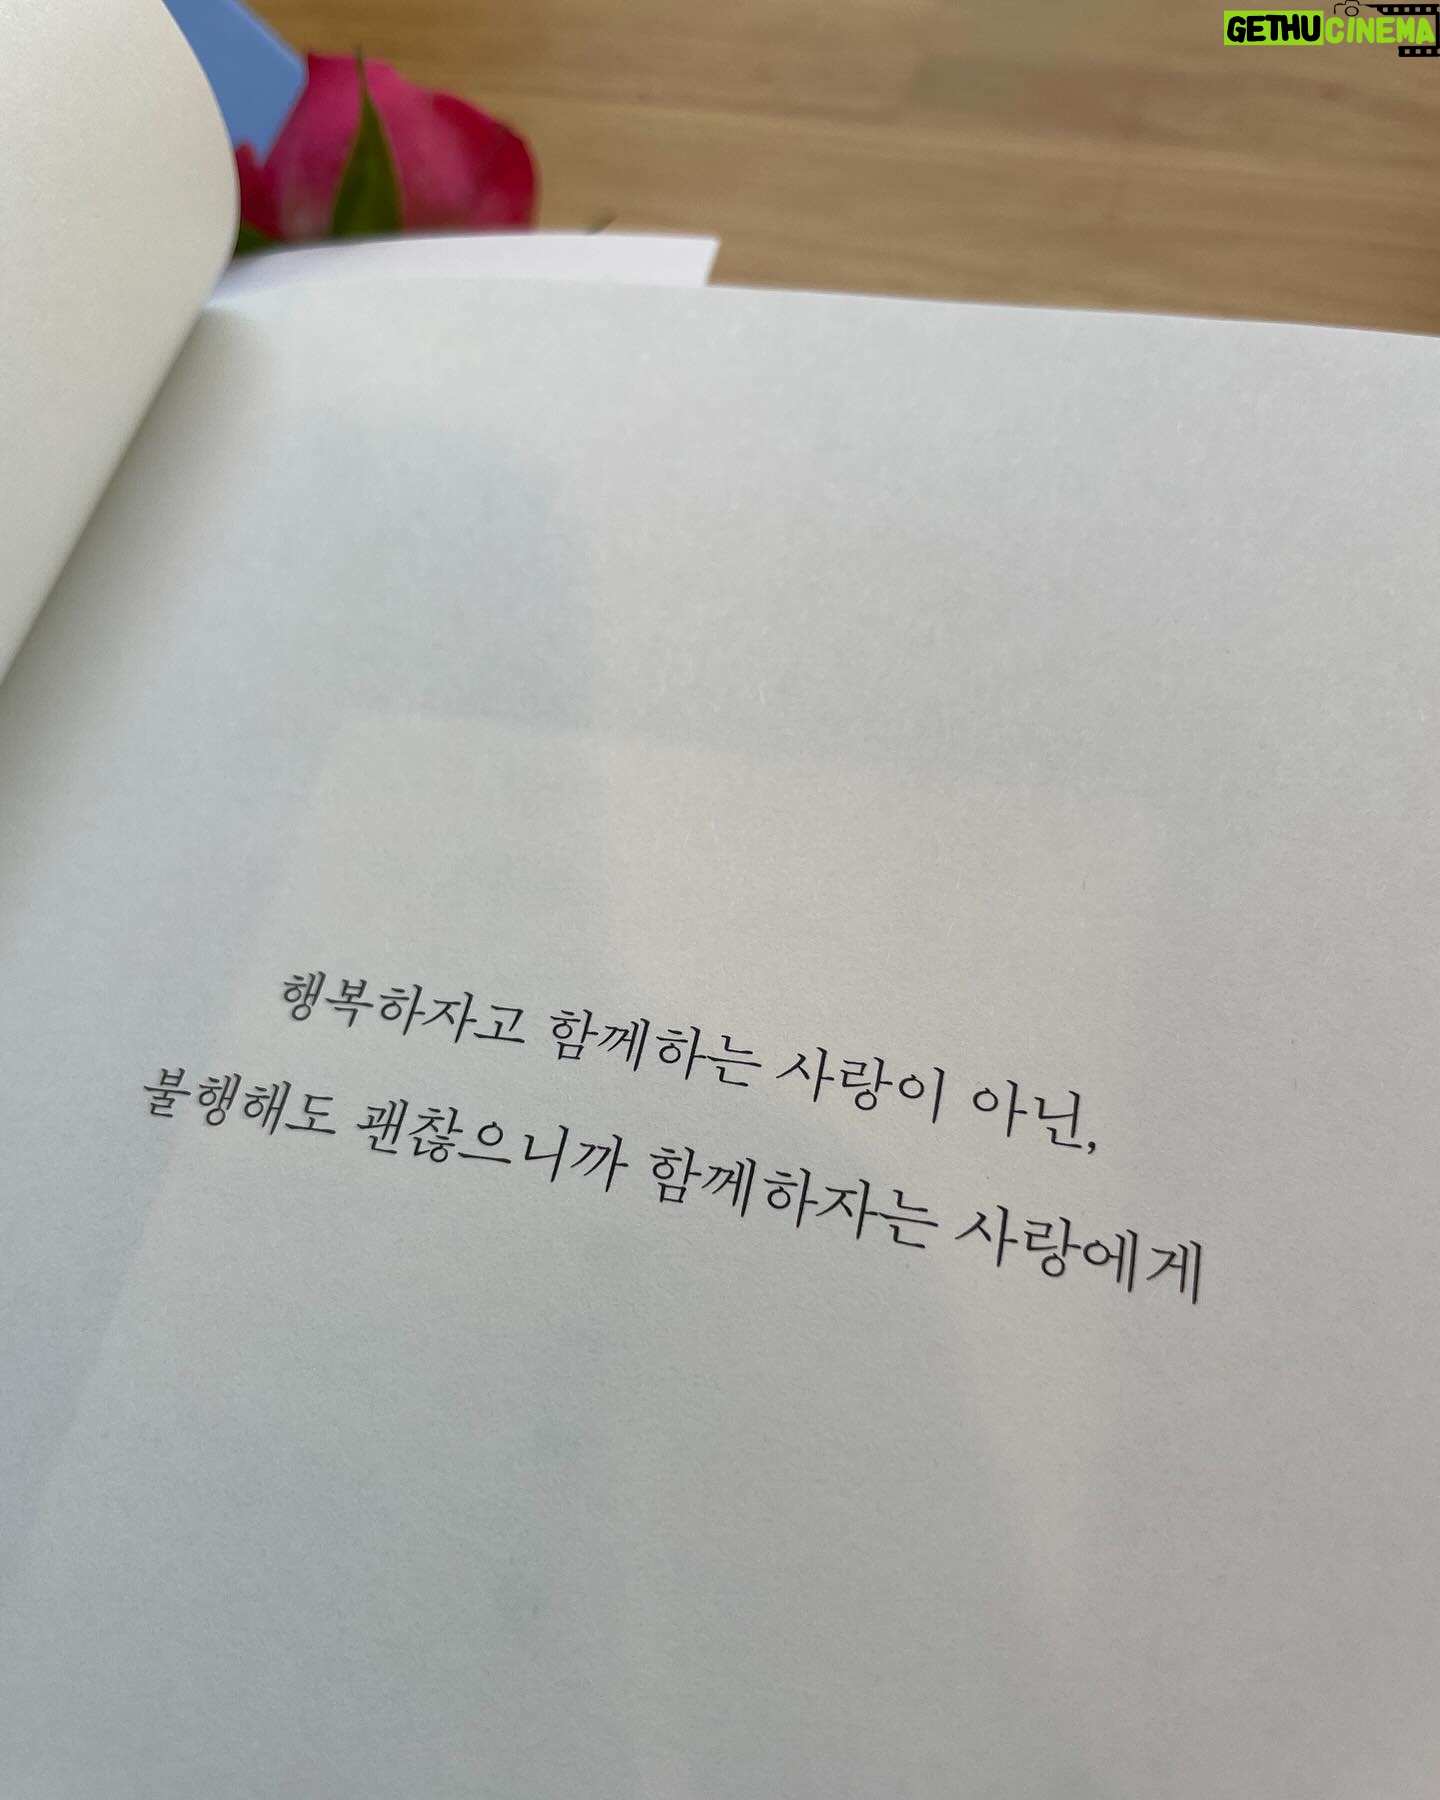 GETHUCINEMA
행복하자고 함께하는 사랑이 아닌,
불행해도 괜찮으니까 함께하자는 사랑에게